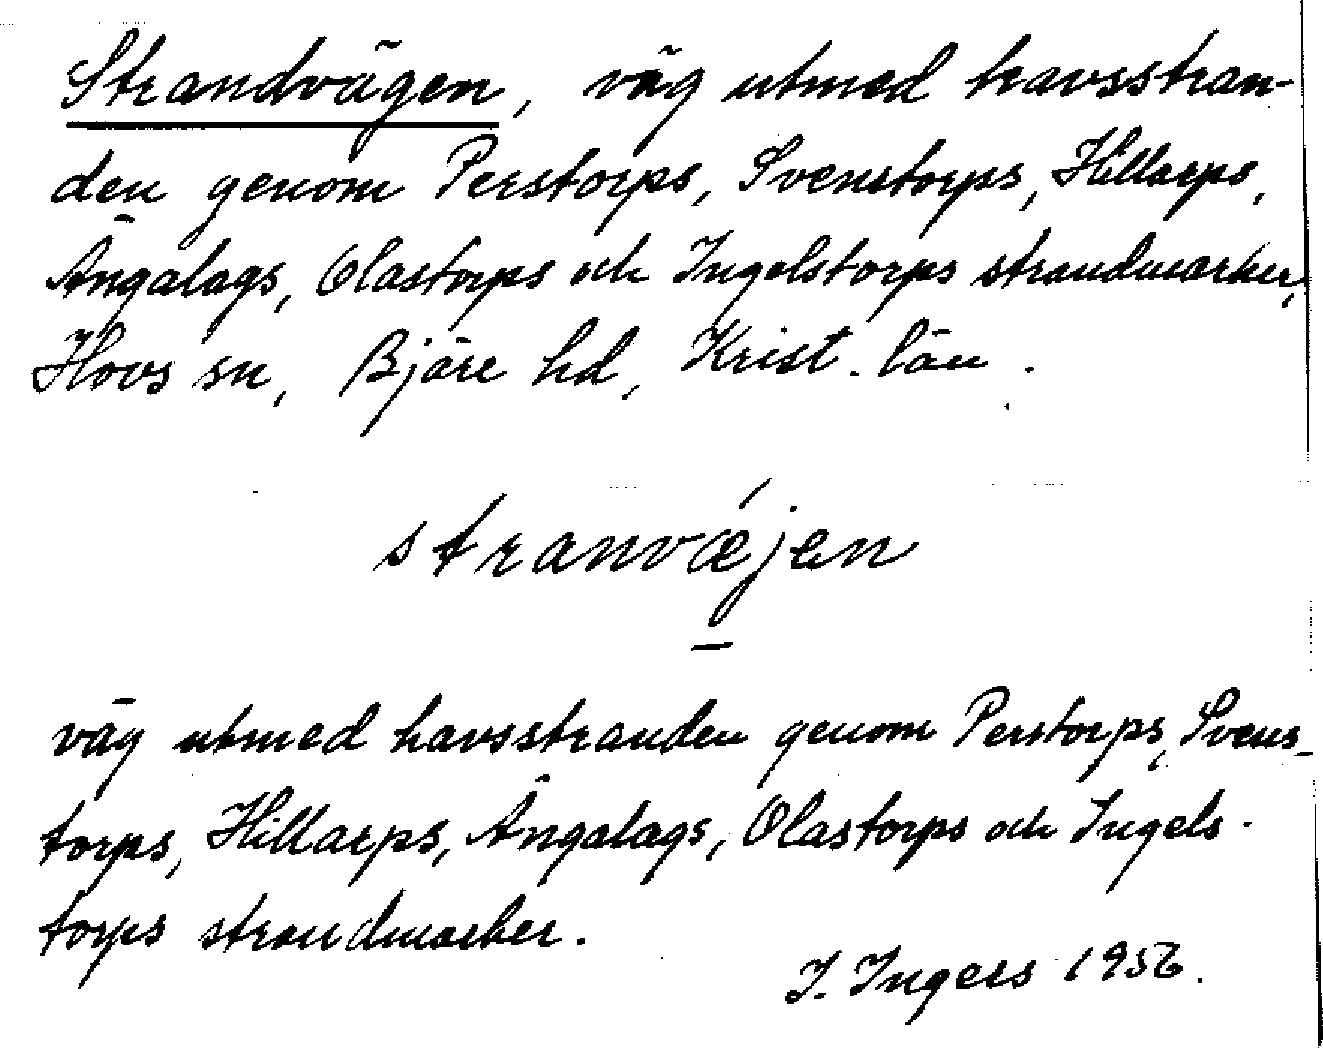 Strandvägen, väg utmed havsstran-
den genom Perstorps, Svenstorps, Hillarps,
Ängalags, Olastorps och Ingelstorps strandmarker,
Hovs sn, Bjäre hd, Krist. län.
stranvǽjen
väg utmed havsstranden genom Perstorps, Svens-
torps, Hillarps, Ängalags, Olastorps och Ingels-
torps strandmarker.
I. Ingers 1956.